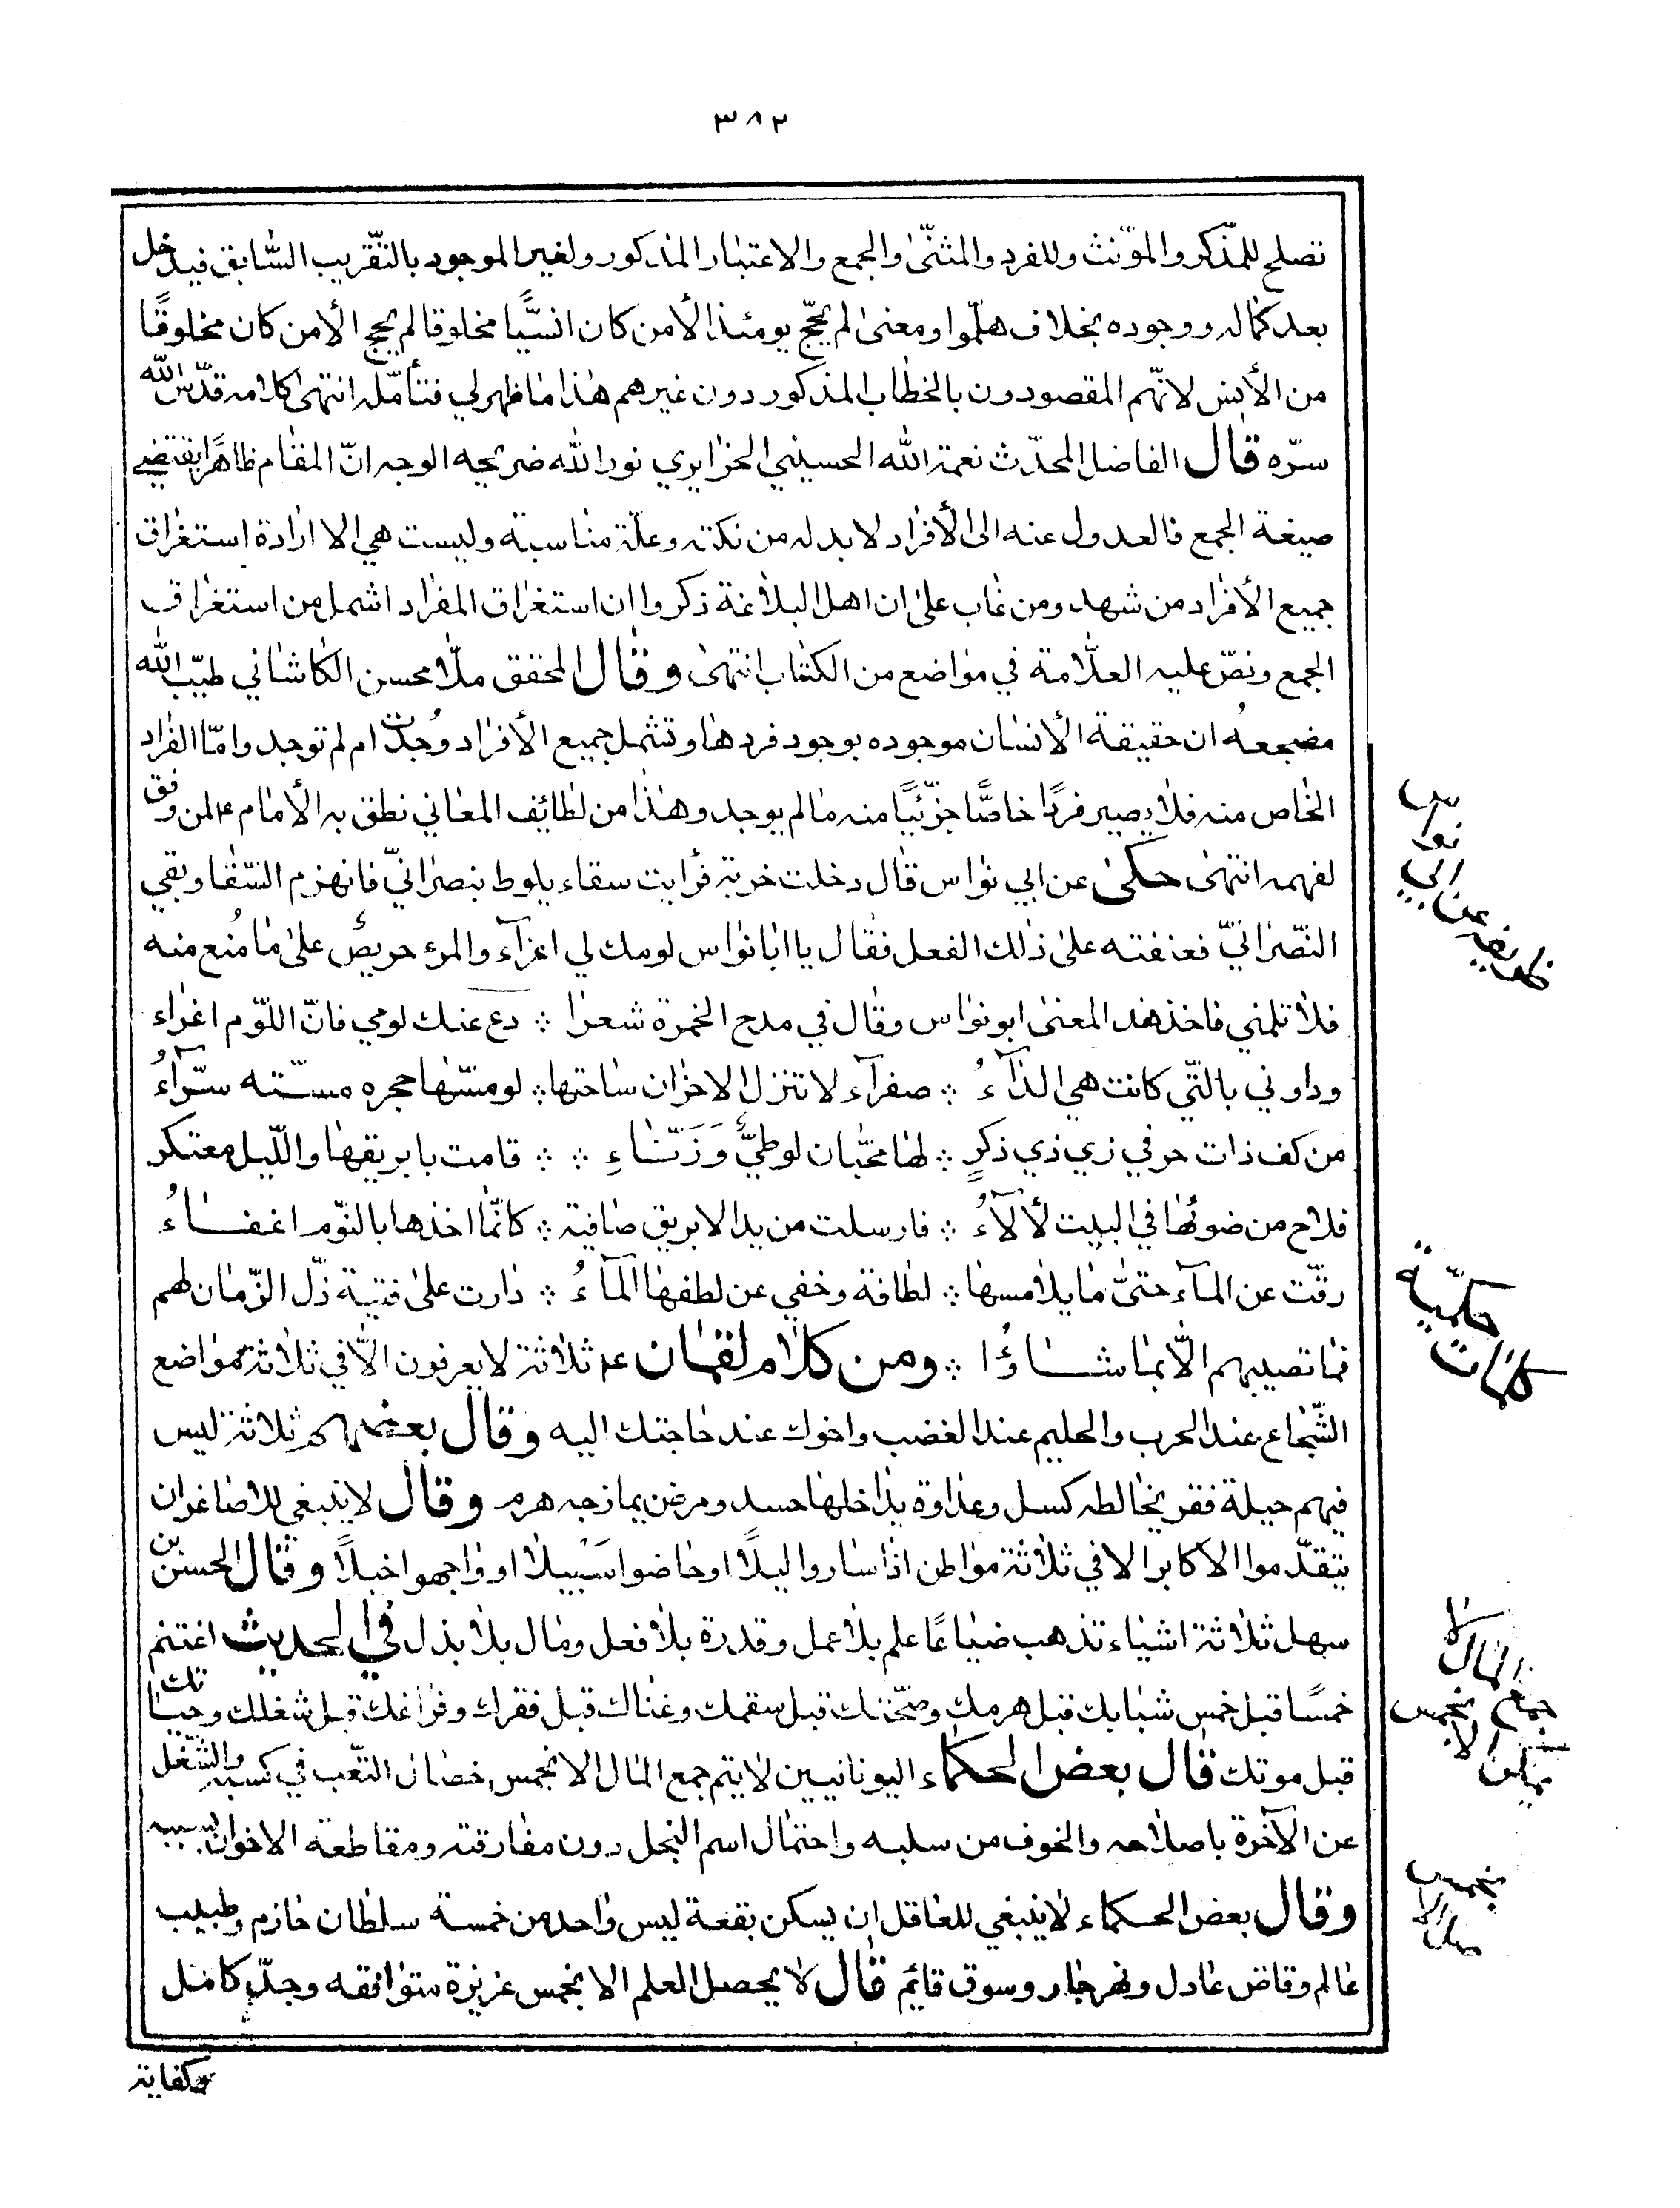 ٣٨٢
تصلح للمذّكر والمؤنث وللفرد والمثنّى والجمع والاعتبار المذكور ولغير الموجود بالتّقريب السّابق فيدخل
بعد كماله ووجوده بخلاف هلمّوا ومعنى لم يحجّ يومئذ الأمن كان انسيًّا مخلوقا لم يحج الأمن كان مخلوقًا
من الأنس لانّهم المقصودون بالخطاب المذكور دون غيرهم هذا ما ظهر لي فتأمّله انتهى كلامه قدّس الله
سرّه قال الفاضل المحدّث نعمة الله الحسيني الجزايري نور الله ضريحه الوجه انّ المقام ظاهرًا يقتضي
صيغة الجمع فالعدول عنه الى الأفراد لا بد له من نكتة وعلّة مناسبة وليست هي الا ارادة استغراق
جميع الأفراد من شهد ومن غاب على ان اهل البلاغة ذكروا ان استغراق المفراد اشمل من استغراق
الجمع ونصّ عليه العلّامة في مواضع من الكتاب انتهى وقال المحقق ملّا محسن الكاشاني طيّب الله
مضجعه ان حقيقة الأنسان موجوده بوجود فردها وتشمل جميع الأفراد وُجدت ام لم توجد وامّا الفراد
الخاص منه فلا يصير فردًا خاصًّا جزئيًا منه ما لم يوجد وهذا من لطايف المعاني نطق به الأمام ع لمن وفق
لفهمه انتهى حكى عن ابي نواس قال دخلت خربة فرأيت سقاء يلوط بنصرانيّ فانهزم السّقا وبقي
النّصرانيّ فعنفته على ذلك الفعل فقال يا ابا نواس لومك لي اغرآء والمرء حريصٌ على ما مُنع منه
فلا تلمني فاخذ هذ المعنى ابو نواس وقال في مدح الخمرة شعرا ؞ دع عنك لومي فانّ اللّوم اغراء
وداوني بالتّي كانت هي الدآءُ ؞ صفرآء لا تنزل الاحزان ساحتها ؞ لو مسّها حجره مسّته سرّآءُ
من كف ذات حر في زي ذي ذكرٍ ؞ لها محبّان لوطيٌّ وَزَنّاءِ ؞ ؞ قامت بابريقها واللّيل معتكر
فلاح من ضوئها في البيت لألآءُ ؞ فارسلت من يد الابريق صافية ؞ كانّما اخذها بالنّوم اغفاءُ
رقّت عن المآء حتّى ما يلامسها ؞ لطافة وخفي عن لطفها المآءُ ؞ دارت على فتية ذلّ الزّمان لهم
فما تصيبهم الّا بما شاؤُا ؞ ومن كلام لقمان ع ثلاثة لا يعرفون الّا في ثلاثة مواضع
الشّجاع عند الحرب والحليم عند الغضب واخوك عند حاجتك اليه وقال بعضهم ثلاثة ليس
فيهم حيلة فقر يخالطه كسل وعداوة يداخلها حسد ومرض يمازجه هرم وقال لا ينبغي للاصاغر ان
يتقدّموا الاكابر الا في ثلاثة مواطن اذا ساروا ليلًا او خاضوا سَيْيلا او واجهوا خيلًا وقال الحسن بن
سهل ثلاثة اشياء تذهب ضياعًا علم بلا عمل وقدرة بلا فعل ومال بلا بذل في الحديث اغتنم
خمسًا قبل خمس شبابك قبل هرمك وصحّتك قبل سقمك وغناك قبل فقرك وفراغك قبل شغلك وحياتك
قبل موتك قال بعض الحكماء اليونانيين لا يتم جمع المال الا بخمس خصال التّعب في كسبه والشّغل
عن الآخرة باصلاحه والخوف من سلبه واحتمال اسم البخل دون مفارقته ومقاطعة الاخوان بسببه
وقال بعض الحكماء لا ينبغي للعاقل ان يسكن بقعة ليس واحد من خمسة سلطان حازم وطبيب
عالم وقاض عادل ونهر جار وسوق قائم قال لا يحصل العلم الا بخمس غريزة متوافقه وجدّ كامل
وكفاية
ظريفه عن ابي نواس
كلمات حكميّة
جمع المال لا يمكن الا بخمس